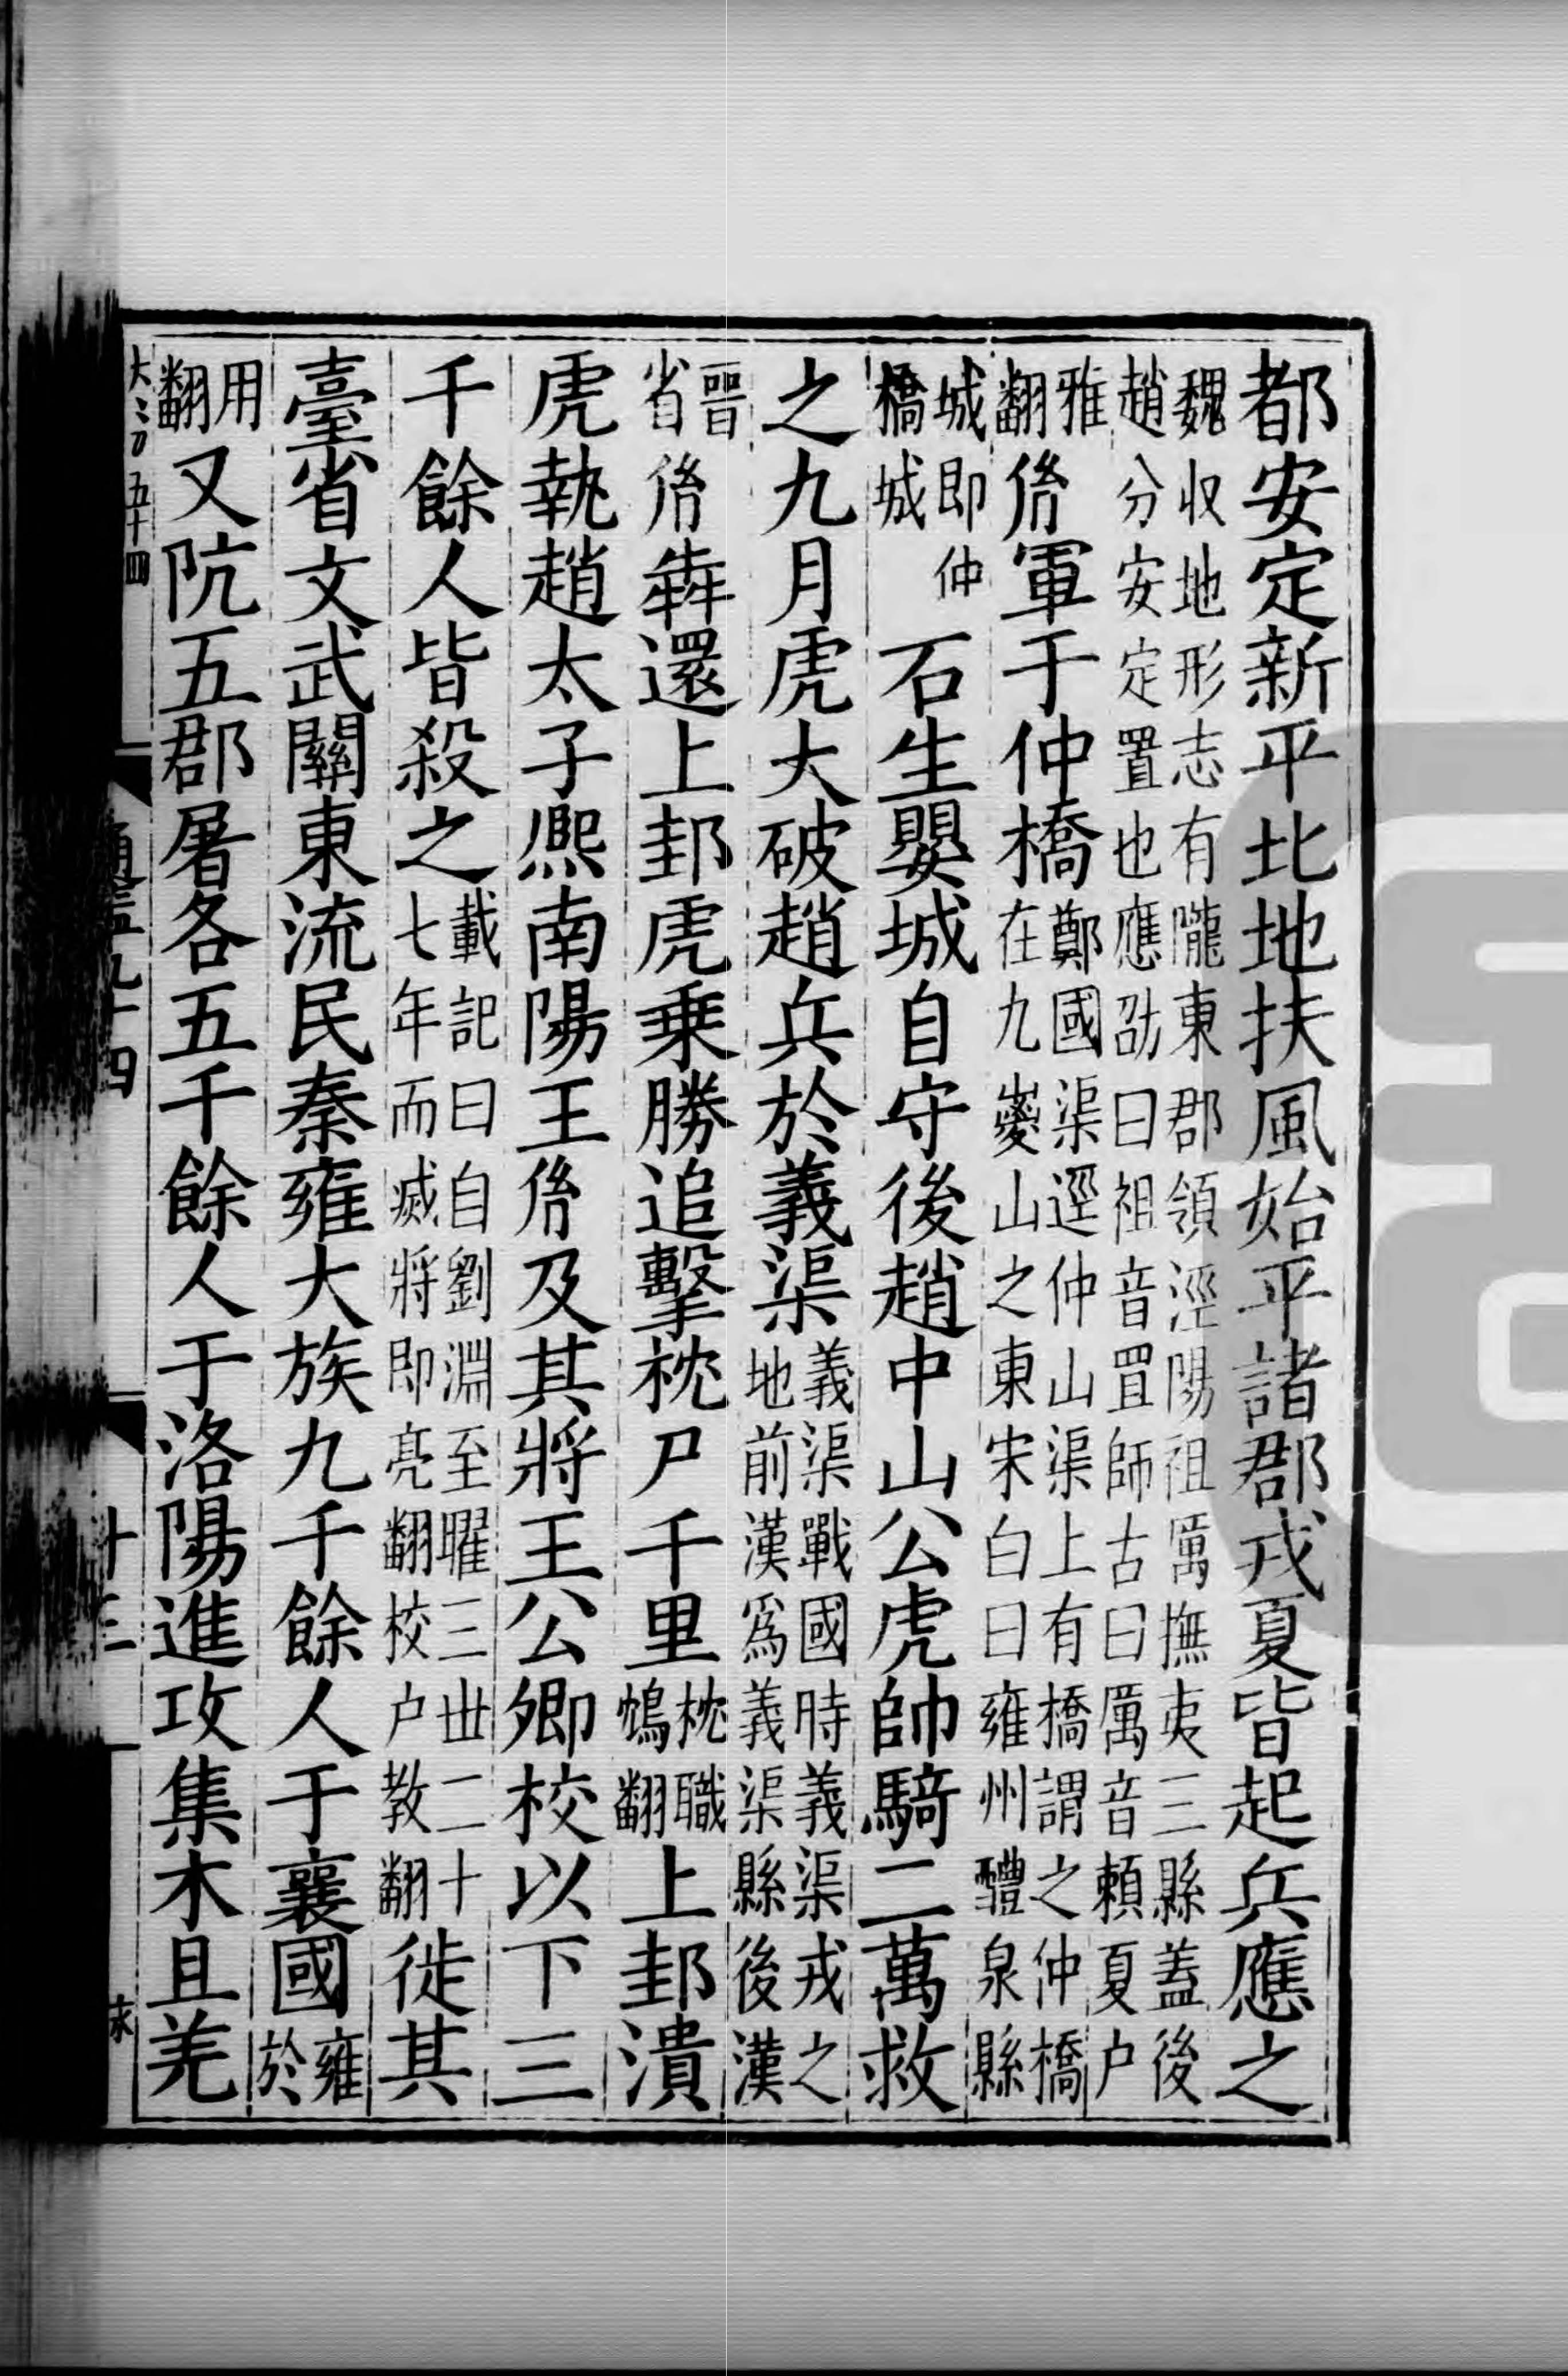 都安定新平北地扶風始平諸郡戎夏皆起兵應之
魏収地形志有隴東郡領涇陽祖厲撫夷三縣蓋後
趙分安定置也應劭曰祖音罝師古曰厲音頼夏户
雅翻胤軍于仲橋鄭國渠逕仲山渠上有橋謂之仲橋在九嵏山之東宋白曰雍州醴泉縣
城即仲橋城石生嬰城自守後趙中山公虎帥騎二萬救
之九月虎大破趙兵於義渠義渠戰國時義渠戎之地前漢爲義渠縣後漢
晉省胤犇還上邽虎乗勝追擊枕尸千里枕職鴆翻上邽潰
虎執趙太子熈南陽王胤及其將王公卿校以下三
千餘人皆殺之載記曰自劉淵至曜三世二十七年而滅將即亮翻校户教翻徙其
臺省文武關東流民秦雍大族九千餘人于襄國雍於
用翻又阬五郡屠各五千餘人于洛陽進攻集木且羌
五十四
十三